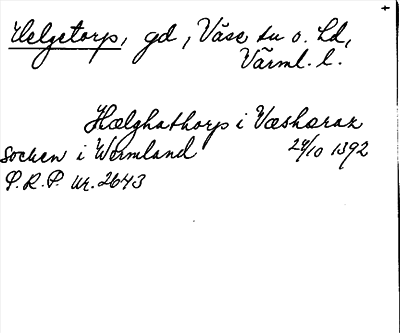 Helgetorp, gd, Väse sn o. hd,
Värml. l.
Hælghathorp i Væshæræz
Socken i Wermland 24/10 1392
P.R.P. nr. 2643